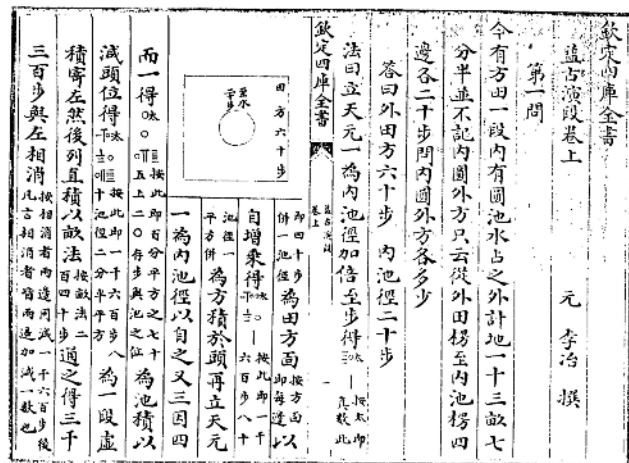 欽定四庫全書
益古演段卷上
元 李冶 撰
第一問
今有方田一段內有圓池水占之外計地一十三畝七
分半並不記內圓外方只云從外田楞至內池楞四
邊各二十步問內圓外方各多少
答曰外田方六十步 內池徑二十步
法曰立天元一為內池徑加倍至步得 太 按太即真數此
欽定四庫全書
益古演段
卷上
田方六十步
至水二十步
即四十步併一池徑 為田方面 按方面即每邊 以
自增乘得 太 按此即一千六百步八十
池徑一平方併 為方積於頭再立天元
一為內池徑以自之又三因四
而一得 太 按此即百分平方之七十五上二〇存步與池之位 為池積以
減頭位得 太 按此即一千六百步八十池徑二分半平方 為一段虛
積寄左然後列直積以畝法 按畝法二百四十步 通之得三千
三百步與左相消 按相消者兩邊同減一千六百步後凡言相消者皆兩邊加減一數也